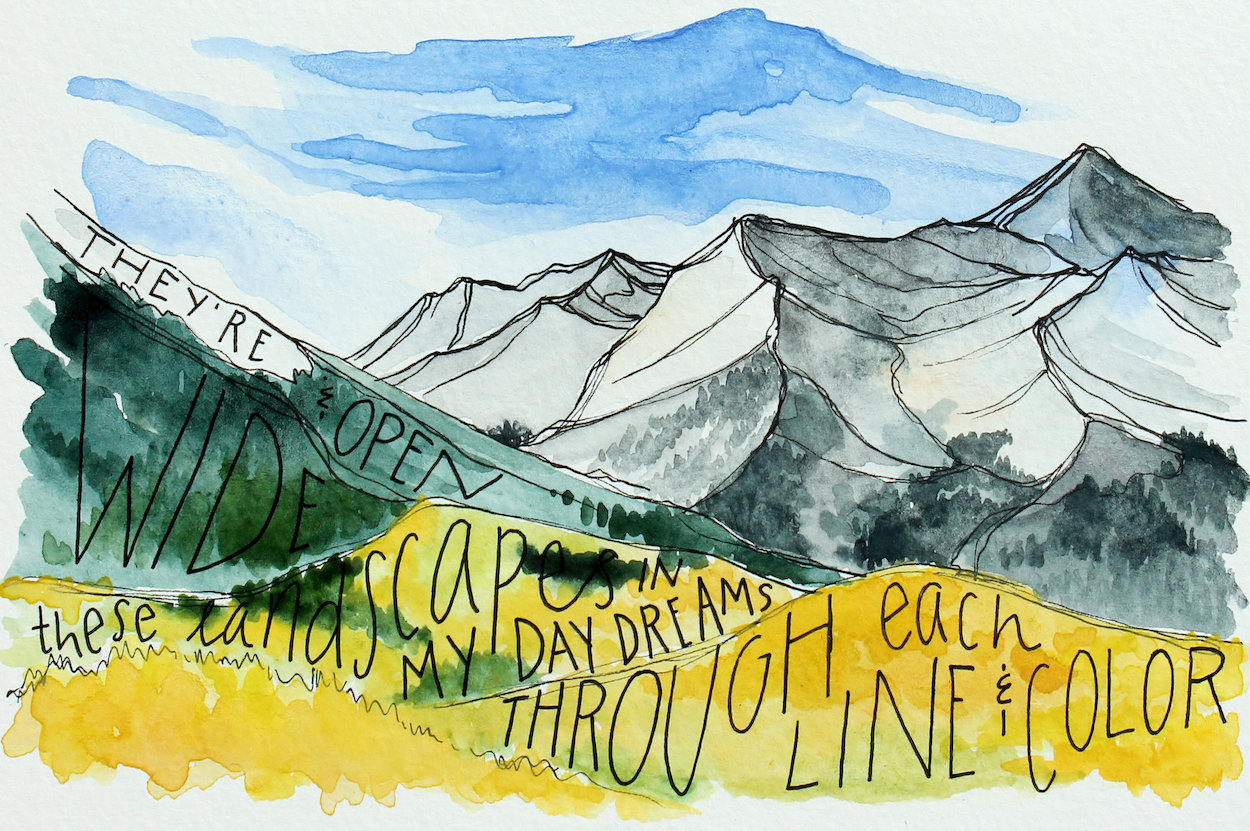 THEY'RE
WIDE & OPEN
these landscapes IN
MY DAY DREAMS
THROUGH each
LINE & COLOR